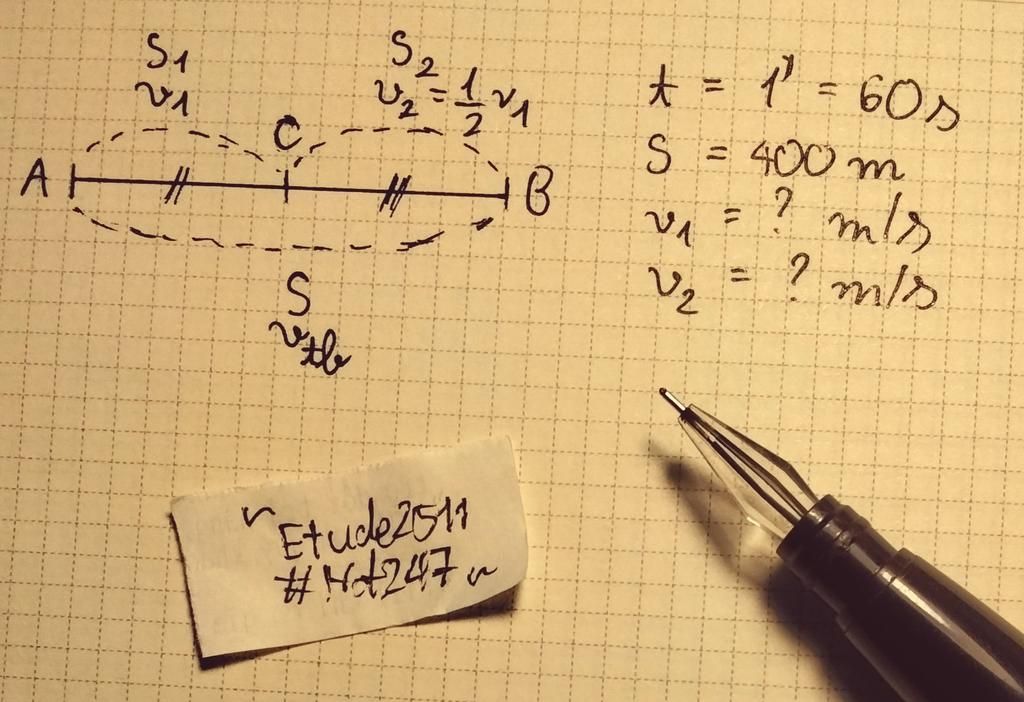 S₁
v₁
S₂
v₂ = 1/2 v₁
C
A
B
S
v_tb
t = 1' = 60s
S = 400 m
v₁ = ? m/s
v₂ = ? m/s
Etude2511
#Not247